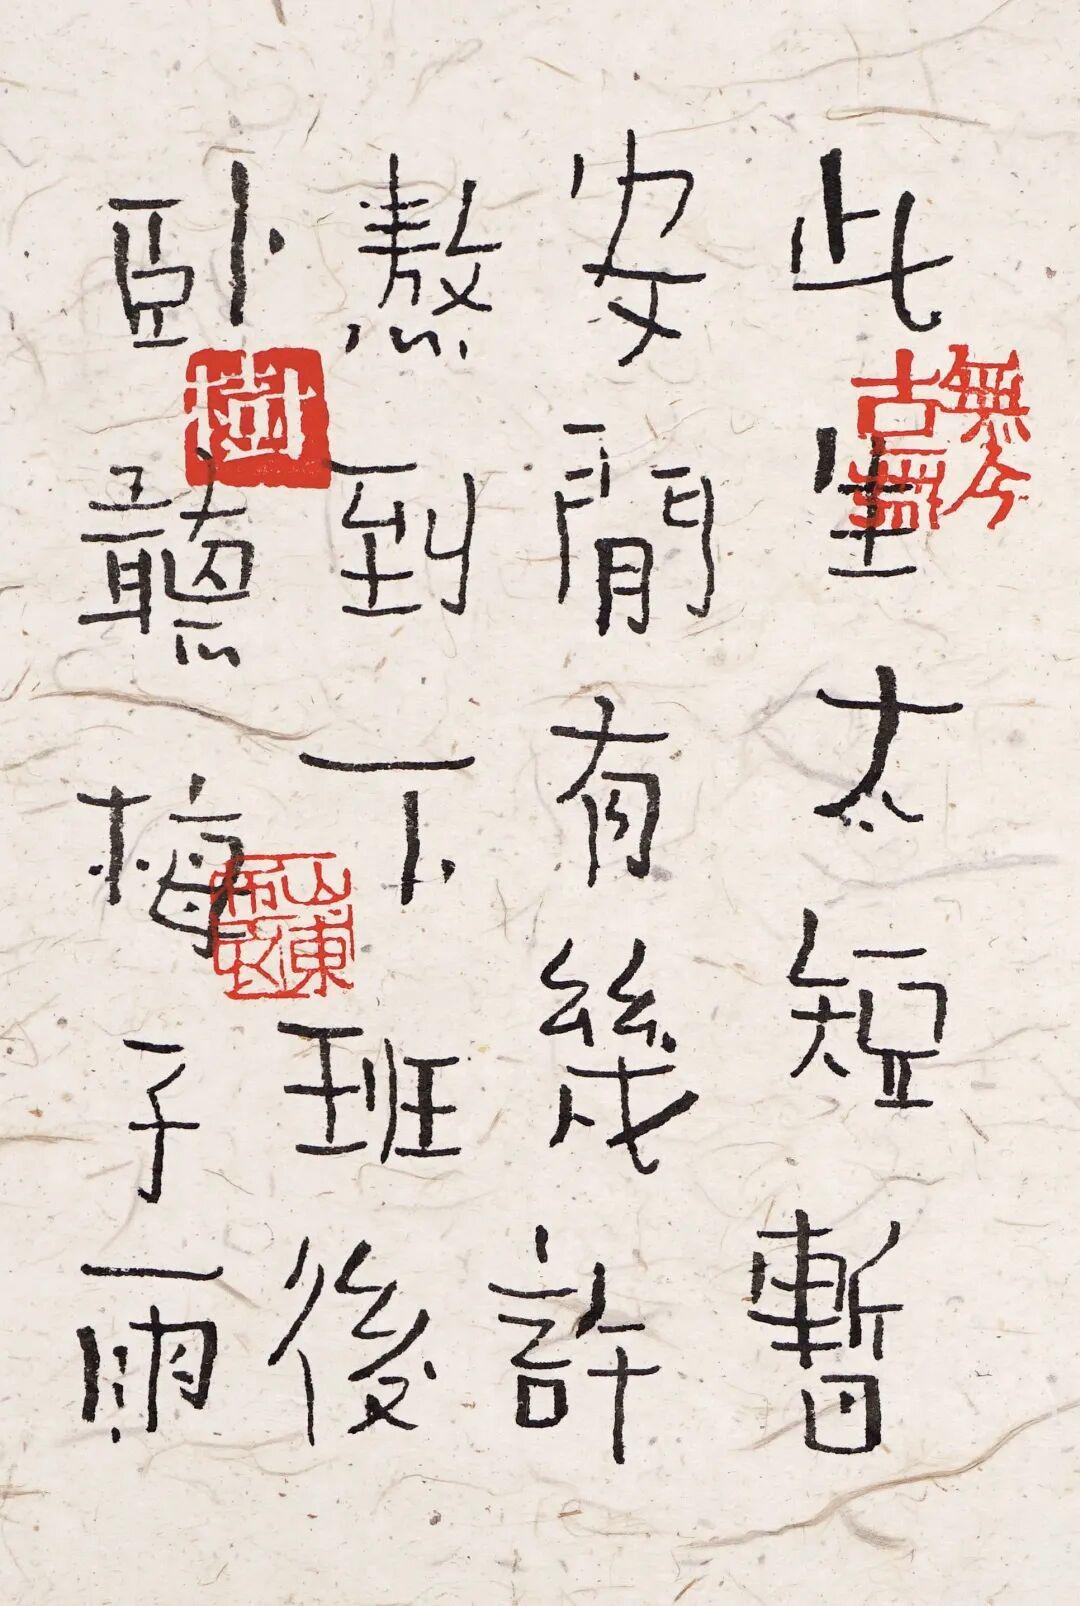 此生太短暫
無古無今
安閒有幾許
熬到下班後
臥聽梅子雨
山東布衣